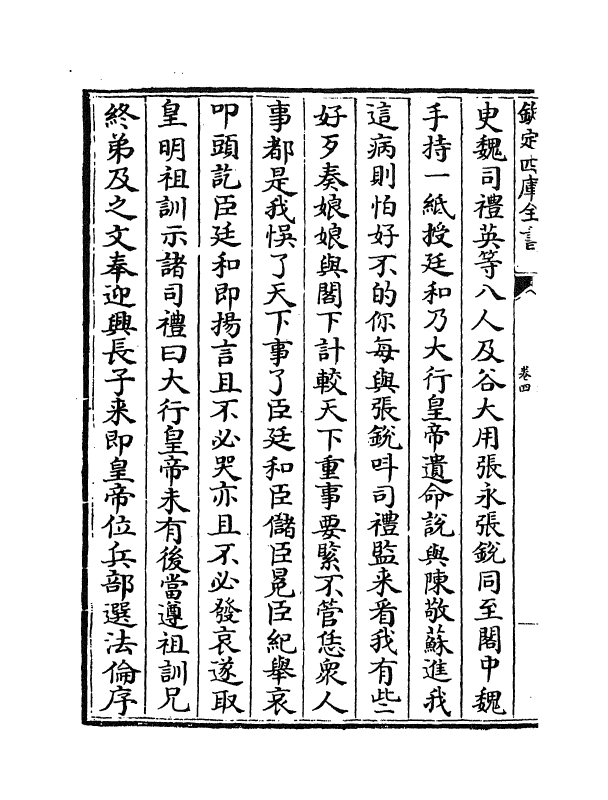 欽定四庫全書
卷四
史魏司禮英等八人及谷大用張永張鋭同至閣中魏
手持一紙授廷和乃大行皇帝遺命說與陳敬蘇進我
這病則怕好不的你每與張鋭呌司禮監来看我有些
好歹奏娘娘與閣下計較天下重事要緊不管恁衆人
事都是我悞了天下事了臣廷和臣儲臣冕臣紀舉哀
叩頭訖臣廷和即揚言且不必哭亦且不必發哀遂取
皇明祖訓示諸司禮曰大行皇帝未有後當遵祖訓兄
終弟及之文奉迎興長子来即皇帝位兵部選法倫序